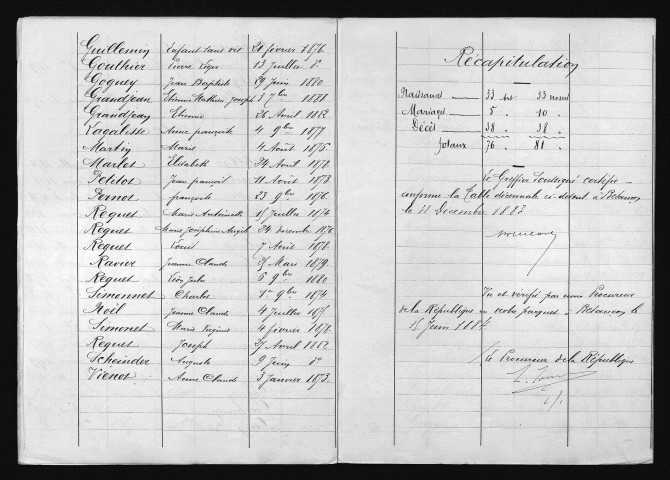 Guillemin Enfant sans vie 21 février 1876
Gouthier Pierre 13 Juillet do
Goguey Jean Baptiste 29 Juin 1880
Grandjean Etienne Mathieu Joseph 3 7bre 1881
Grandjean Etienne 26 Avril 1882
Lagalesse Anne françoise 4 9bre 1877
Martin Marie 4 Août 1875
Marlet Elisabeth 24 Avril 1878
Petitot Jean françois 11 Août 1873
Pernot françoise 23 9bre 1876
Reguet Marie Antoinette 15 Juillet 1874
Reguet Marie Joséphine Angèle 24 décembre 1876
Reguet Louis 7 Avril 1878
Ravier Jeanne Claude 5 Mars 1879
Reguet Léon Jules 6 9bre 1880
Simonnet Charles 1er 9bre 1874
Noël Jeanne Claude 4 Juillet 1875
Simonet Marie Virginie 4 février 1878
Reguet Joseph 27 Avril 1882
Scheinder Auguste 9 Juin do
Vienot Anne Claude 3 Janvier 1873
Récapitulation
Naissances 33 actes 33 noms
Mariages 5 " 10 "
Décès 38 " 38 "
Totaux 76 " 81 "
Le Greffier Soussigné certifie
conforme la Table décennale ci-dessus à Besançon
le 11 Décembre 1883
Vu et vérifié par nous Procureur
de la République en notre parquet à Besançon le
15 Juin 1884
Le Procureur de la République